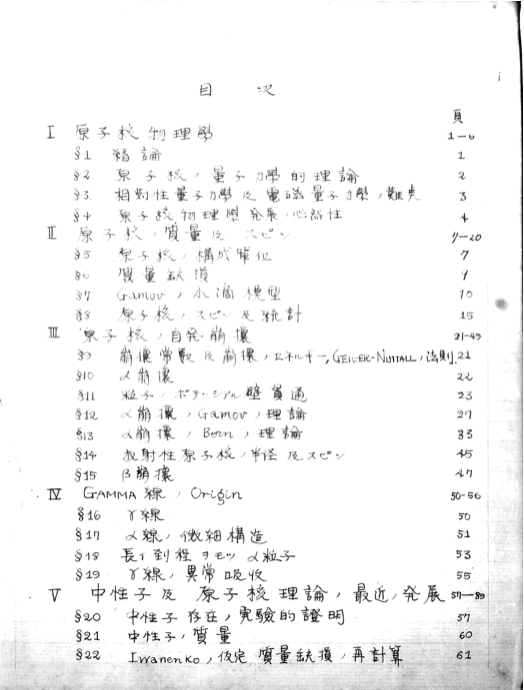 i
目 次
頁
I 原子核物理學 1—6
§1. 緒論 1
§2 原子核ノ量子力學的理論 2
§3. 相對性量子力學及電磁量子力學ノ難点 3
§4 原子核物理學発展ノ 4
II 原子核ノ質量及スピン 7—20
§5 原子核ノ構成單位 7
§6 質量缺損 9
§7 Gamovノ小滴模型 10
§8 原子核ノスピン及統計 15
III 原子核ノ自発崩壞 21-49
§9 崩壞常數及崩壞ノエネルギー, GEIGER-NUTTALLノ法則 21
§10 α崩壞 22
§11 粒子ノポテンシアル壁貫通 23
§12 α崩壞ノGamovノ理論 27
§13 α崩壞ノBornノ理論 33
§14 放射性原子核ノ半径及スピン 45
§15 β崩壞 47
IV GAMMA線ノOrigin 50-56
§16 γ線 50
§17 α線ノ微細構造 51
§18 長イ到程ヲモツα粒子 53
§19 γ線ノ異常吸收 55
V 中性子及原子核理論ノ最近ノ発展 57—89
§20 中性子存在ノ実驗的證明 57
§21 中性子ノ質量 60
§22 Iwanenkoノ仮定 質量缺損ノ再計算 61